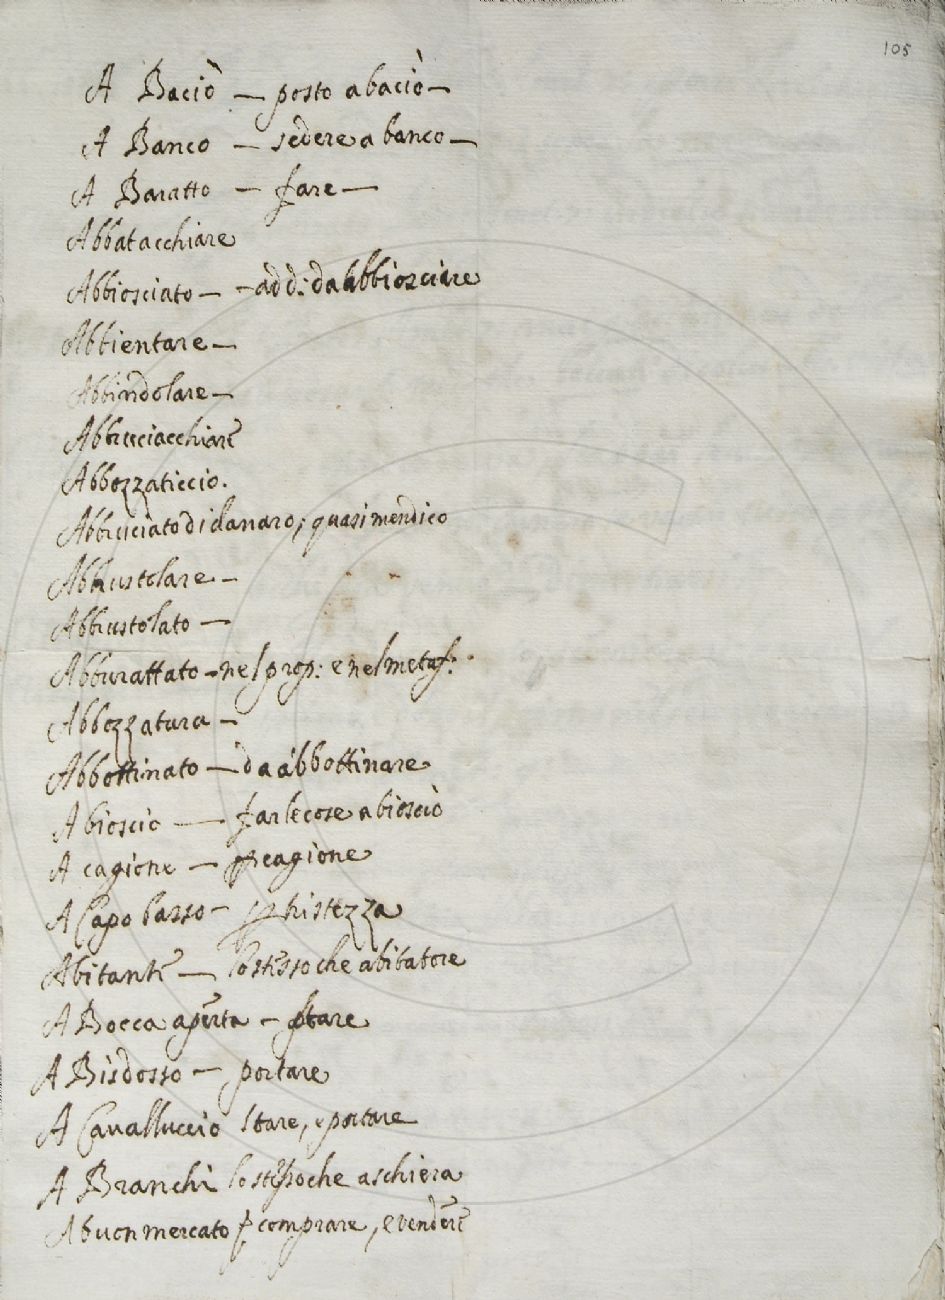 105
A Baciò — posto a bacìo —
A Banco — sedere a banco —
A Baratto — fare —
Abbatacchiare
Abbiosciato — - add: da Abbiosciare
Abbientare —
Abbindolare —
Abbruciacchiare
Abbozzaticcio.
Abbruciato di danaro, quasi mendico
Abbrustolare —
Abbrustolato —
Abburattato - nel prop: e nel metaf:
Abbozzatura —
Abbottinato — da abbottinare
A bioscio — far le cose a bioscio
A cagione — p cagione
A Capo basso — p tristezza
Abitante — lo stesso che abitatore
A Bocca aperta — stare
A Bisdosso — portare
A Cavalluccio stare, e portare
A Branchi lo stesso che a schiera
A buon mercato p comprare, e vendere